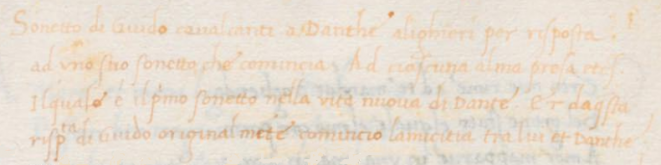 Sonetto di Guido cavalcanti a Danthe alighieri per risposta.
ad vno suo sonetto che comincia Ad ciascuna alma presa etc.
Il quale e il pmo sonetto nella vita nuoua di Dante. Er daqsta
rispta di Guido originalmete comincio lamicitia tra lui et Danthe